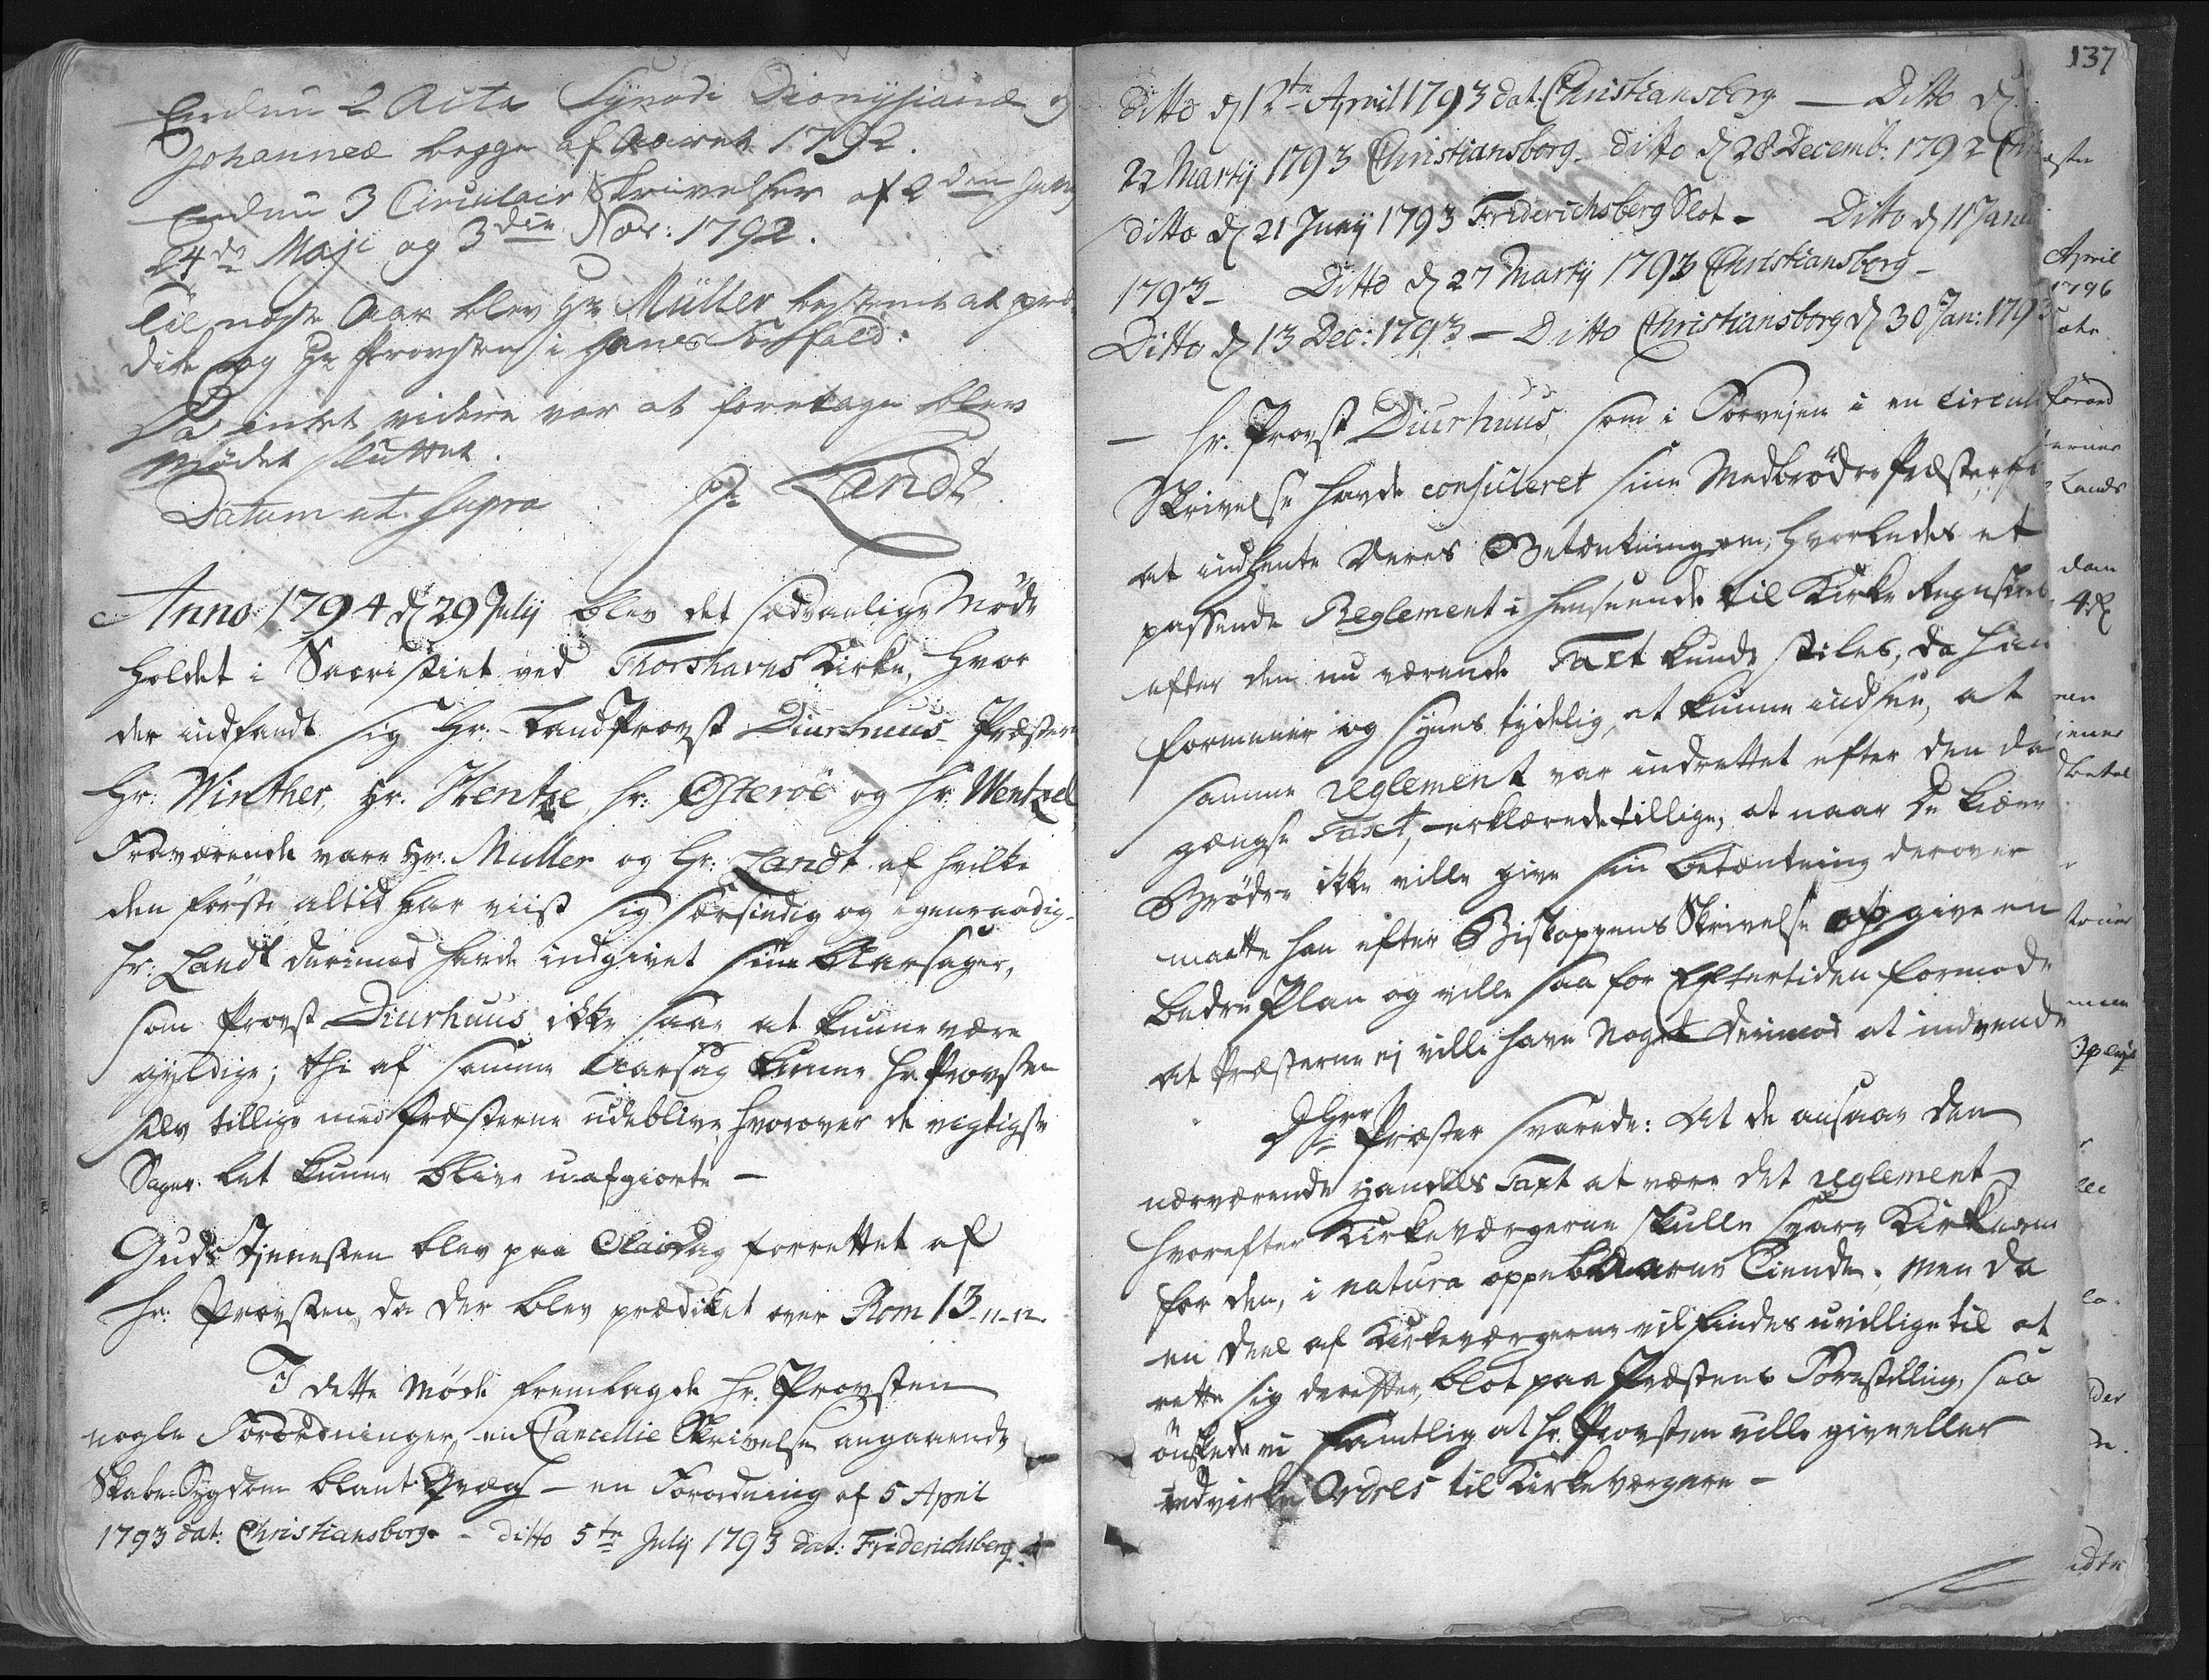 Endnu 2 Acta Synodi Dionysianæ og
Johanneæ begge af Aaret 1792.
Endnu 3 Circulair Skrivelser af 2den Juny
24de Maji og 3die Nov: 1792.
Til næste Aar blev Hr Müller bestemt at præ
dike og Hr Provsten i hans Forfald.
Da intet videre var at foretage blev
Mødet sluttet.
Datum ut supra Landt
Anno 1794 d 29 July blev det sædvanlige Møde
holdet i Sacristiet ved Thorshavns Kirke, hvor
der indfandt sig Hr. LandProvst Diurhuus Præstere
Hr: Winther, Hr. Hentze, Hr: Østerøe og Hr: Wentzel
Fraværende vare Hr. Müller og Hr: Landt af hvilke
den første altid har viist sig særsindig og egenraadig
Hr: Landt derimod havde indgivet sine Aarsager,
som Provst Diurhuus ikke saae at kunne være
gyldige; thi af samme Aarsag kunne Hr Provsten
selv tillige med Præsterne udeblive, hvorover de vigtigste
Sager let kunne blive uafgiorte —
Guds Tjenesten blev paa Olai Dag forrettet af
Hr: Provsten, da der blev prædiket over Rom 13-11-12.
I dette Møde fremlagde Hr. Provsten
nogle Forordninger, en Cancellie Skrivelse angaaende
Skabe-Sygdom blant Qvæg — en Forordning af 5 April
1793 dat: Christiansborg - ditto 5te July 1793 dat: Friderichsberg
137
ditto d 12te April 1793 dat. Christiansborg — Ditto d
22 Martij 1793 Christiansborg. ditto d 28 Decemb: 1792
ditto d 21 Juny 1793 Friderichsberg Slot - Ditto d 11 Janu
1793 - Ditto d 27 Martij 1793 Christiansborg -
Ditto d 13 Dec: 1793 — Ditto Christiansborg d 30 Jan: 1793
— Hr. Provst Diurhuus, som i Forvejen i en circul
Skrivelse havde consuleret sine Medbrødre Præsterne
at indhente Deres Betænkning om, hvorledes et
passende Reglement i henseende til Kirke Regnskab
efter den nu værende Taxt kunde stiles, da han
formener og synes tydelig, at kunne indsee, at
samme reglement var indrettet efter den da
gængse Taxt, erklærede tillige, at naar De kiære
Brødre ikke ville give sin Betænkning derover
maatte han efter Biskoppens Skrivelse opgive en
bedre Plan og ville saa for Eftertiden formode
at Præsterne ej ville have noget derimod at indvende
Præster svarede: At de ansaae den
nærværende Handels Taxt at være det reglement
hvorefter Kirkeværgerne skulle svare Kirkerne
for den, i natura oppebaarne Tiende; men da
en deel af Kirkeværgerne vil findes uvillige til at
rette sig derefter, blot paa Præstens Forestilling, saa
ønskede vi samtlig at Hr. Provsten ville give eller
udvirke Ordres til Kirkeværgere —
April
1796
Lands
dem